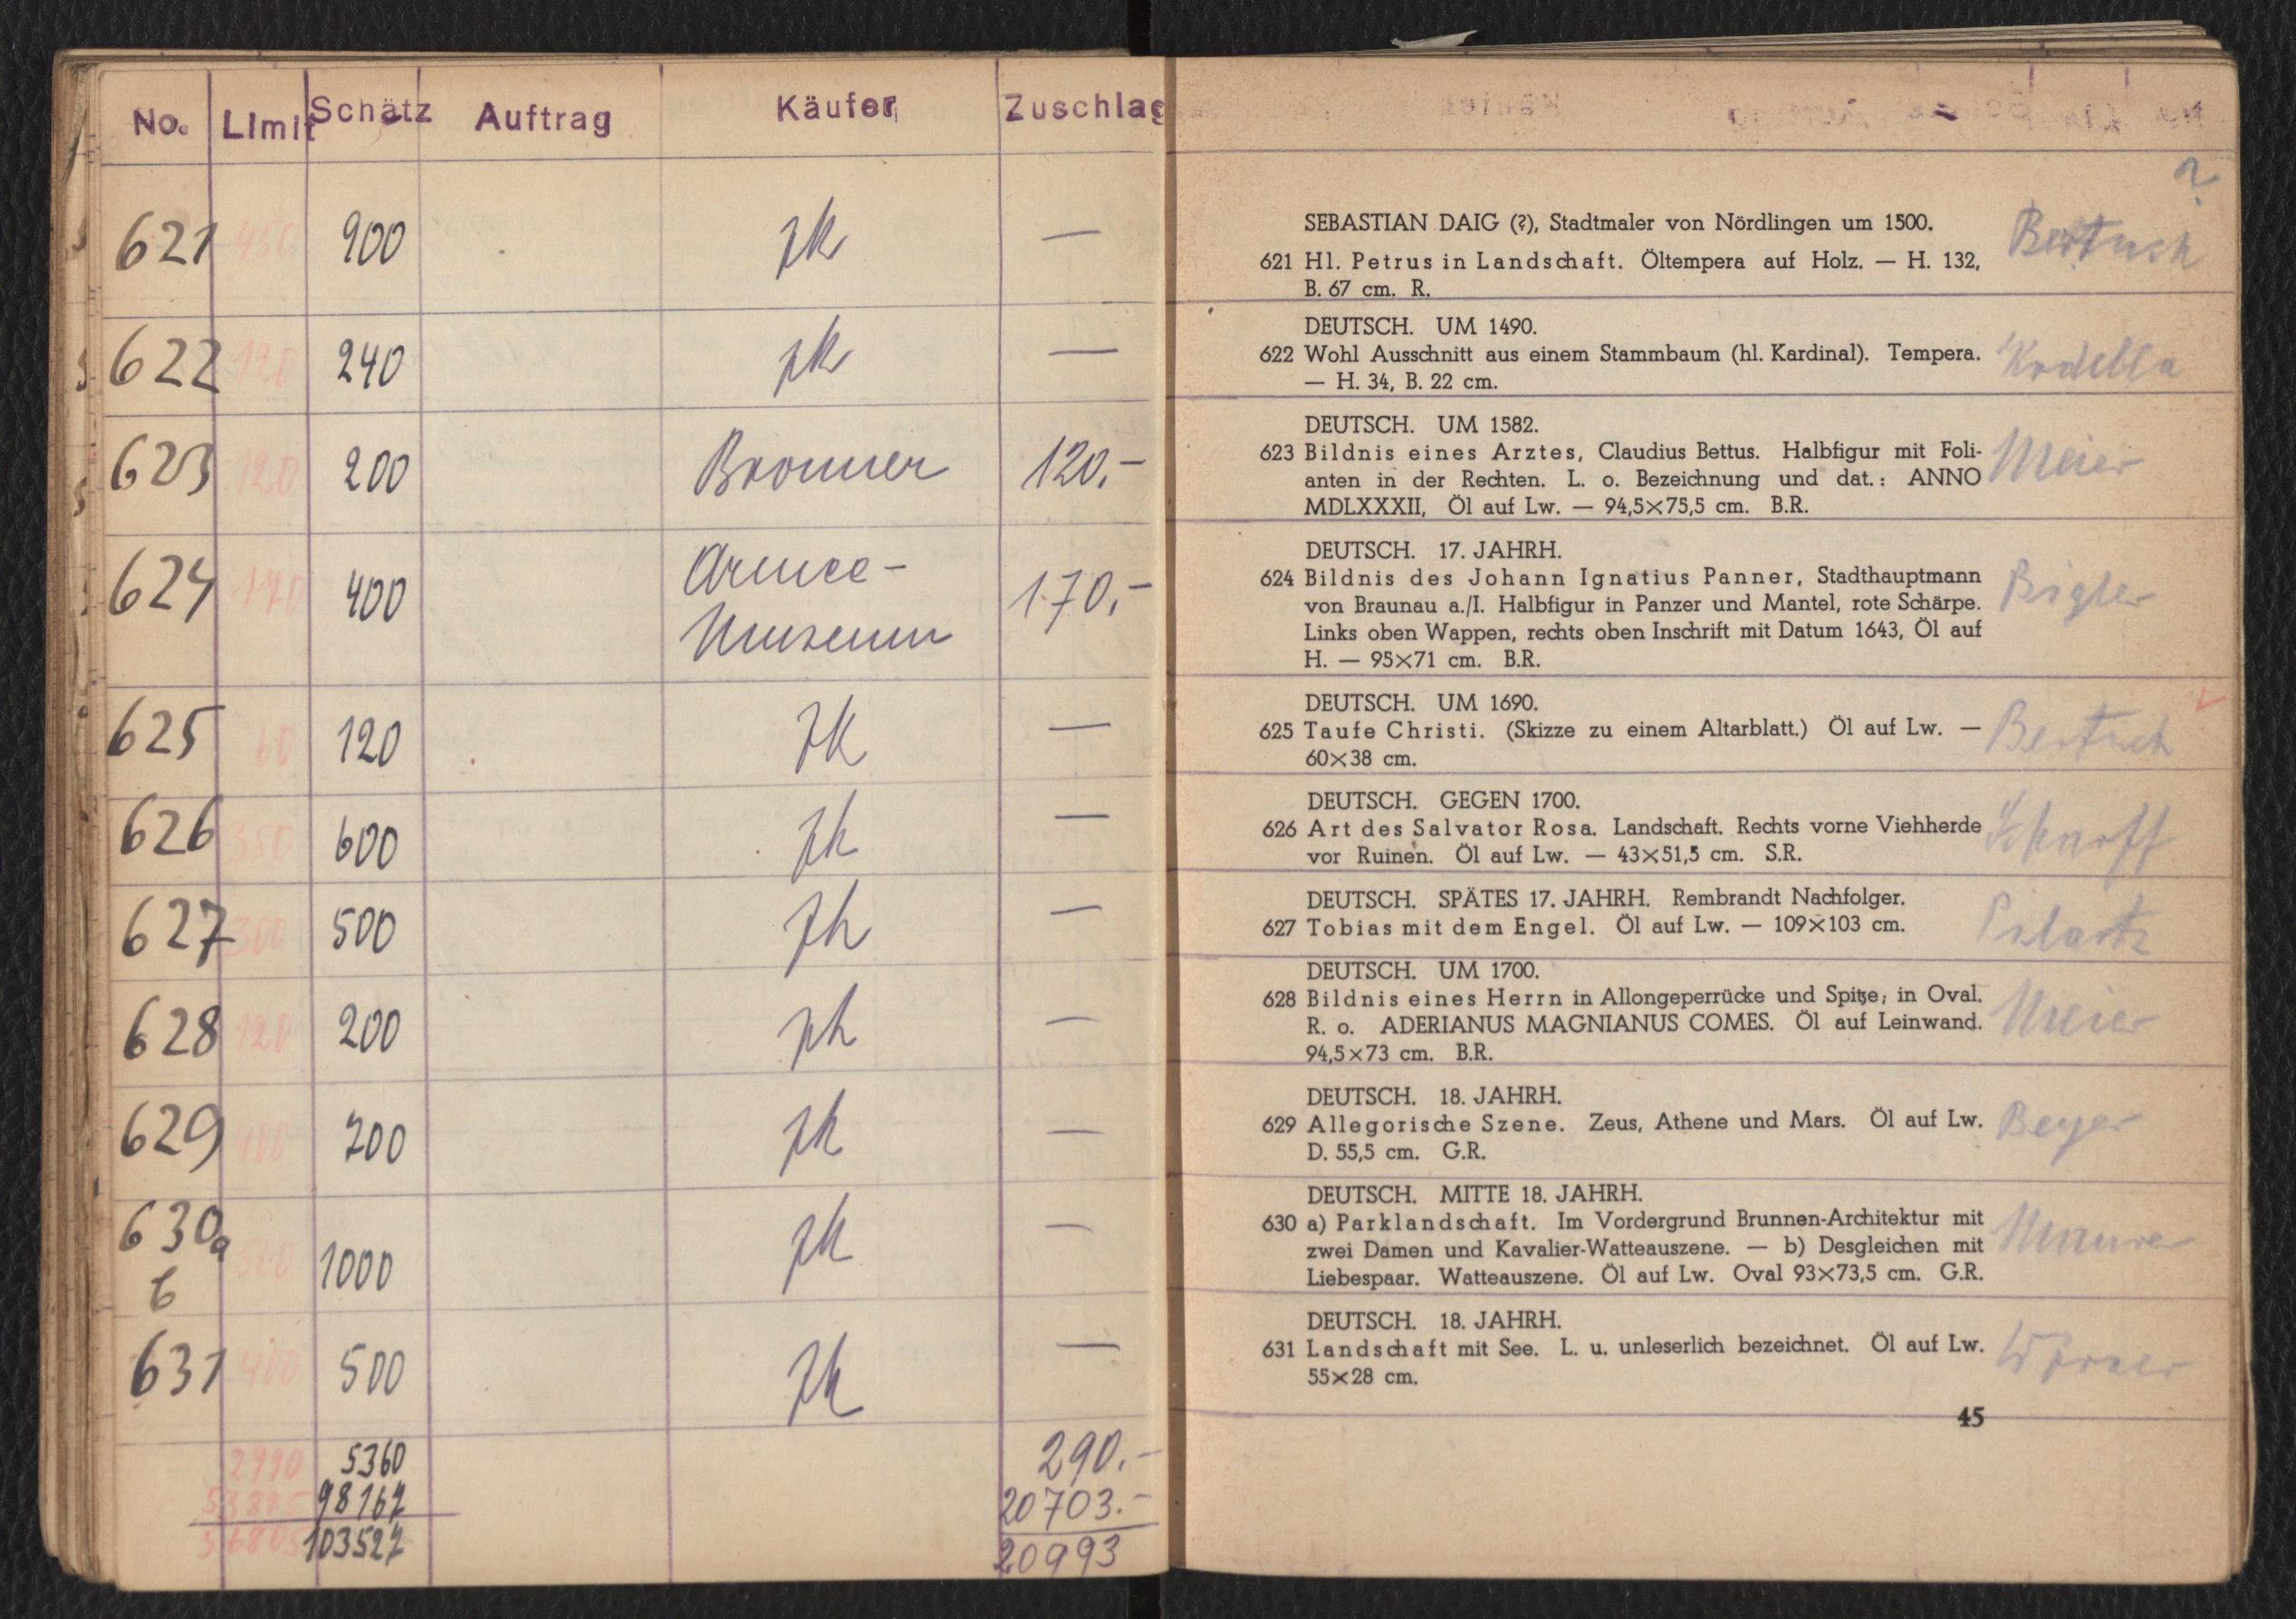 No. Limit Schätz Auftrag Käufer Zuschlag
621 450 900 zk —
622 120 240 zk —
623 120 200 Bronner 120.-
624 170 400 Armee-
Museum 170.-
625 60 120 zk —
626 350 600 zk —
627 300 500 zk —
628 120 200 zk —
629 400 700 zk —
630a
b 500 1000 zk —
631 400 500 zk —
2990 5360 290.-
53815 98167 20703.-
56805 103527 20993
?
SEBASTIAN DAIG (?), Stadtmaler von Nördlingen um 1500.
621 Hl. Petrus in Landschaft. Öltempera auf Holz. — H. 132, Bertsch
B. 67 cm. R.
DEUTSCH. UM 1490.
622 Wohl Ausschnitt aus einem Stammbaum (hl. Kardinal). Tempera. Kodella
— H. 34, B. 22 cm.
DEUTSCH. UM 1582.
623 Bildnis eines Arztes, Claudius Bettus. Halbfigur mit Foli- Meier
anten in der Rechten. L. o. Bezeichnung und dat.: ANNO
MDLXXXII, Öl auf Lw. — 94,5×75,5 cm. B.R.
DEUTSCH. 17. JAHRH.
624 Bildnis des Johann Ignatius Panner, Stadthauptmann Bigler
von Braunau a./I. Halbfigur in Panzer und Mantel, rote Schärpe.
Links oben Wappen, rechts oben Inschrift mit Datum 1643, Öl auf
H. — 95×71 cm. B.R.
DEUTSCH. UM 1690.
625 Taufe Christi. (Skizze zu einem Altarblatt.) Öl auf Lw. — Bertsch
60×38 cm.
DEUTSCH. GEGEN 1700.
626 Art des Salvator Rosa. Landschaft. Rechts vorne Viehherde Scharff
vor Ruinen. Öl auf Lw. — 43×51,5 cm. S.R.
DEUTSCH. SPÄTES 17. JAHRH. Rembrandt Nachfolger.
627 Tobias mit dem Engel. Öl auf Lw. — 109×103 cm.
DEUTSCH. UM 1700.
628 Bildnis eines Herrn in Allongeperrücke und Spitze; in Oval. Meier
R. o. ADERIANUS MAGNIANUS COMES. Öl auf Leinwand.
94,5×73 cm. B.R.
DEUTSCH. 18. JAHRH.
629 Allegorische Szene. Zeus, Athene und Mars. Öl auf Lw. Beyer
D. 55,5 cm. G.R.
DEUTSCH. MITTE 18. JAHRH.
630 a) Parklandschaft. Im Vordergrund Brunnen-Architektur mit Maurer
zwei Damen und Kavalier-Watteauszene. — b) Desgleichen mit
Liebespaar. Watteauszene. Öl auf Lw. Oval 93×73,5 cm. G.R.
DEUTSCH. 18. JAHRH.
631 Landschaft mit See. L. u. unleserlich bezeichnet. Öl auf Lw. Wörner
55×28 cm.
45